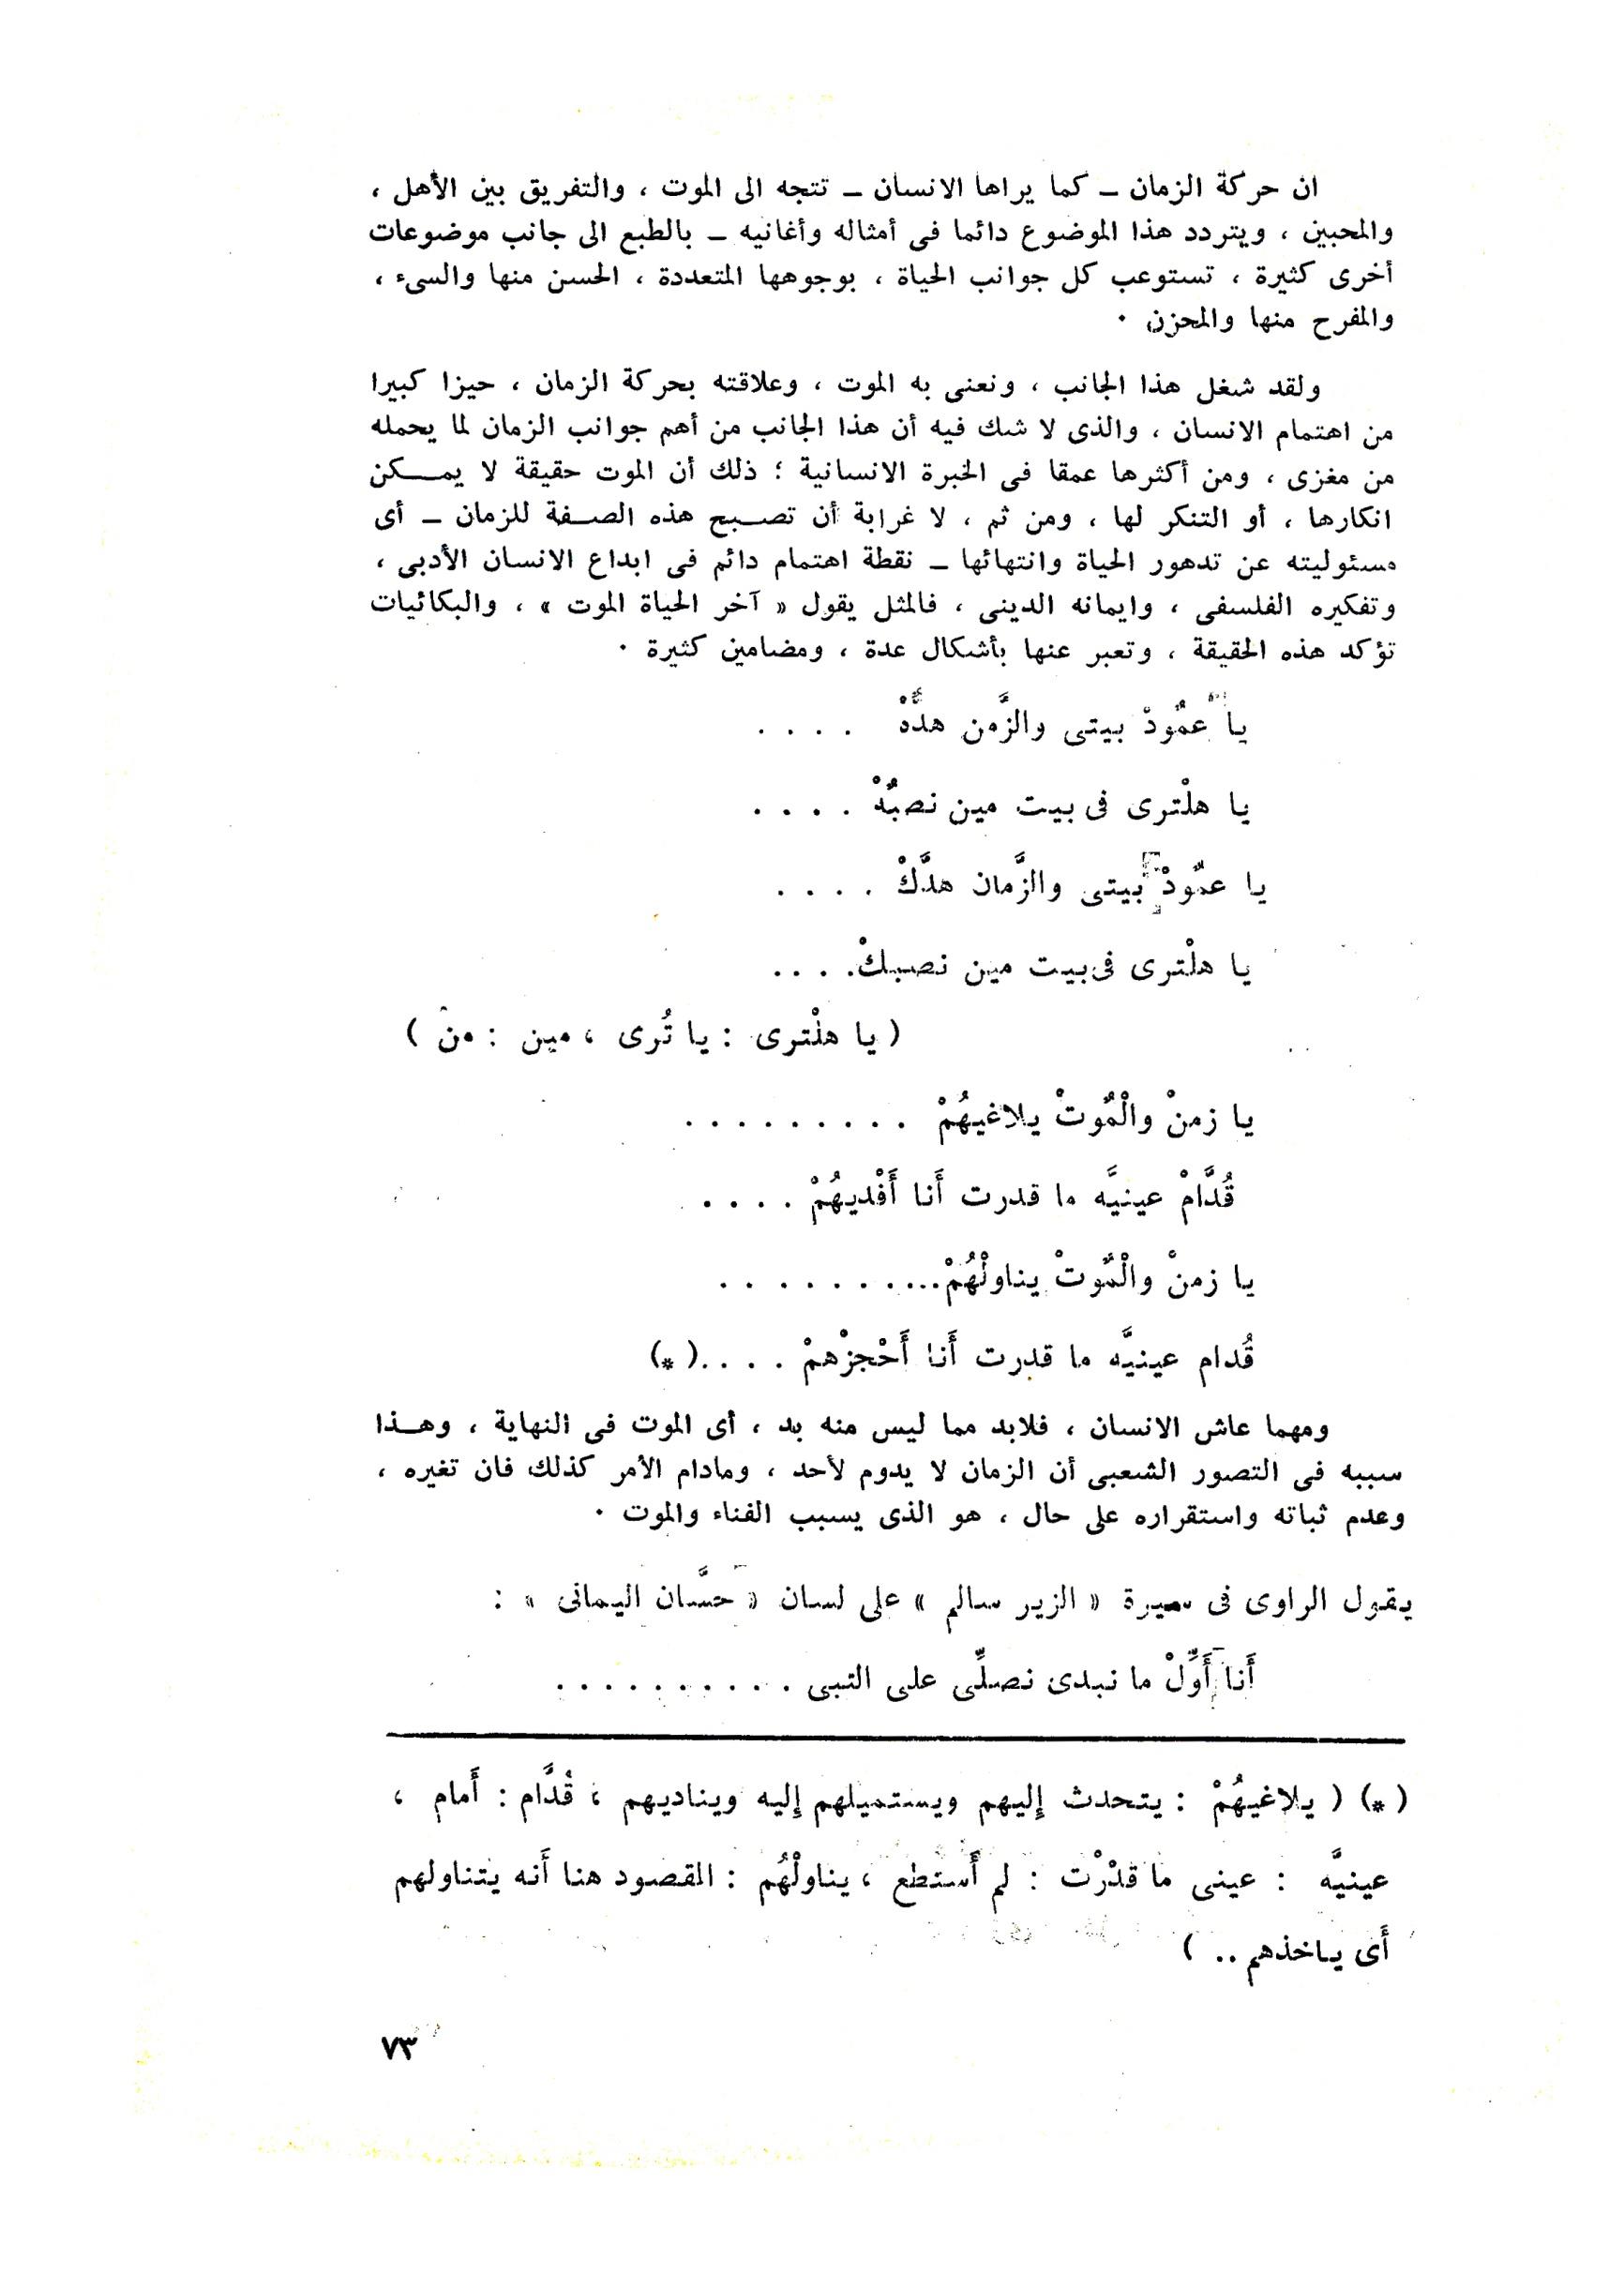 ان حركة الزمان ــ كما يراها الانسان ــ تتجه الى الموت ، والتفريق بين الأهل ،
والمحبين ، ويتردد هذا الموضوع دائما فى أمثاله وأغانيه ــ بالطبع الى جانب موضوعات
أخرى كثيرة ، تستوعب كل جوانب الحياة ، بوجوهها المتعددة ، الحسن منها والسىء ،
والمفرح منها والمحزن ٠
ولقد شغل هذا الجانب ، ونعنى به الموت ، وعلاقته بحركة الزمان ، حيزا كبيرا
من اهتمام الانسان ، والذى لا شك فيه أن هذا الجانب من أهم جوانب الزمان لما يحمله
من مغزى ، ومن أكثرها عمقا فى الخبرة الانسانية ؛ ذلك أن الموت حقيقة لا يمـــكن
انكارها ، أو التنكر لها ، ومن ثم ، لا غرابة أن تصـبح هذه الصـفة للزمان ــ أى
مسئوليته عن تدهور الحياة وانتهائها ــ نقطة اهتمام دائم فى ابداع الانسان الأدبى ،
وتفكيره الفلسفى ، وايمانه الدينى ، فالمثل يقول « آخر الحياة الموت » ، والبكائيات
تؤكد هذه الحقيقة ، وتعبر عنها بأشكال عدة ، ومضامين كثيرة ٠
يا عمُودْ بيتى والزَّمن هدُّهْ . . . .
يا هلْترى فى بيت مين نصبُهْ . . . .
يا عمُودْ بيتى والزَّمان هدَّكْ . . . .
يا هلْترى فى بيت مين نصبكْ. . . .
( يا هلْترى : يا تُرى ، مين : منْ )
يا زمنْ والْمُوتْ يلاغيهُمْ . . . . . . . . .
قُدَّامْ عينيَّه ما قدرت أَنا أَفْديهُمْ . . . .
يا زمنْ والْمُوتْ يناولْهُمْ... . . . . . . . .
قُدام عينيَّه ما قدرت أَنا أَحْجزْهمْ . . . .(*)
ومهما عاش الانسان ، فلابد مما ليس منه بد ، أى الموت فى النهاية ، وهــذا
سببه فى التصور الشعبى أن الزمان لا يدوم لأحد ، ومادام الأمر كذلك فان تغيره ،
وعدم ثباته واستقراره على حال ، هو الذى يسبب الفناء والموت ٠
يقول الراوى فى سيرة « الزير سالم » على لسان « حسَّان اليمانى » :
أَنا أَوِّلْ ما نبدى نصلِّى على النبى . . . . . . . . . .
(*) ( يلاغيهُمْ : يتحدث إليهم ويستميلهم إليه ويناديهم ، قُدَّام : أَمام ،
عينيَّه : عينى ما قدْرْت : لم أَستطع ، يناولْهُم : المقصود هنا أَنه يتناولهم
أَى ياخذهم .. )
٧٣